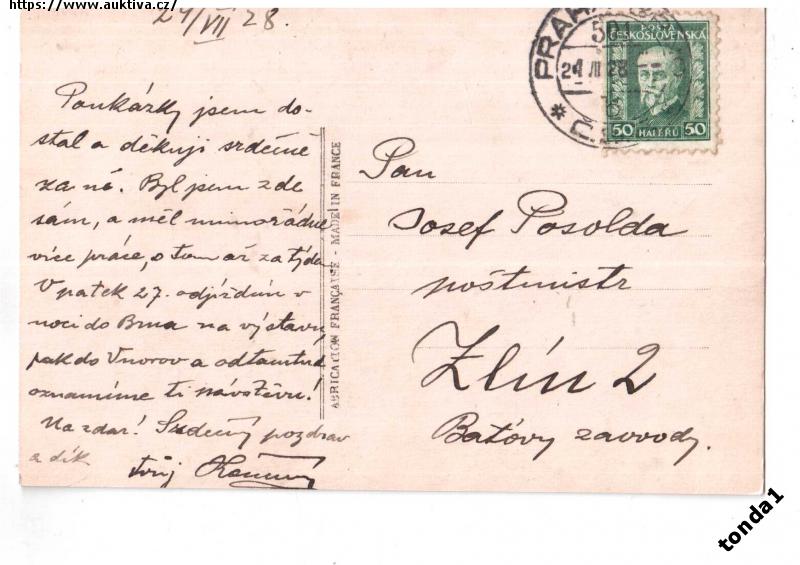 https://www.auktiva.cz/
24/VII 28.
Poukázky jsem do-
stal a děkuji srdečně
za ně. Byl jsem zde
sám, a měl mimořádně
více práce, o tom až za týden
V pátek 27. odjíždím v
noci do Brna na výstavu
pak do Vnorov a odtamtud
oznamíme ti návštěvu!
Na zdar! Srdečný pozdrav
a dík
tvůj
FABRICATION FRANÇAISE - MADE IN FRANCE
PRAHA
24 VII 28
POŠTA
ČESKOSLOVENSKÁ
50 HALÉŘŮ 50
Pan
Josef Posolda
poštmistr
Zlín 2
Batovy zavody.
tonda1